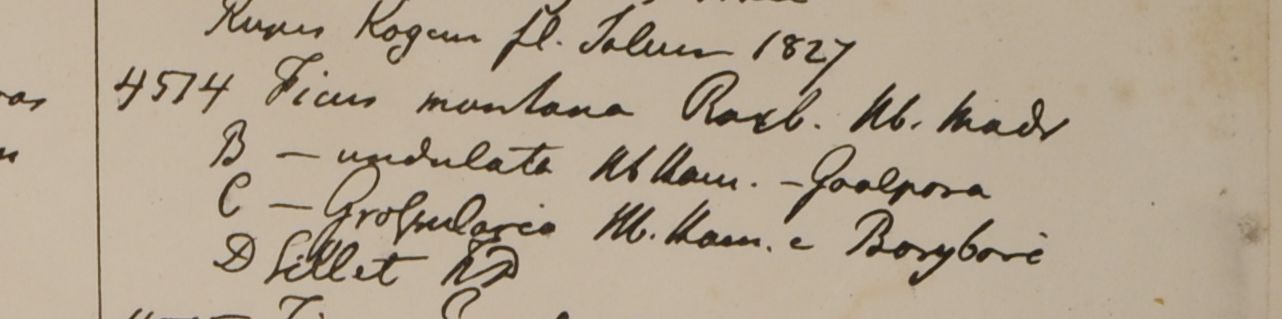 Rupes Rogun fl. Salum 1827
4574 Ficus montana Roxb. Hb. Madr
B — undulata Hb Ham. - Goalpora
C — Grossularia Hb. Ham. e
D Sillet